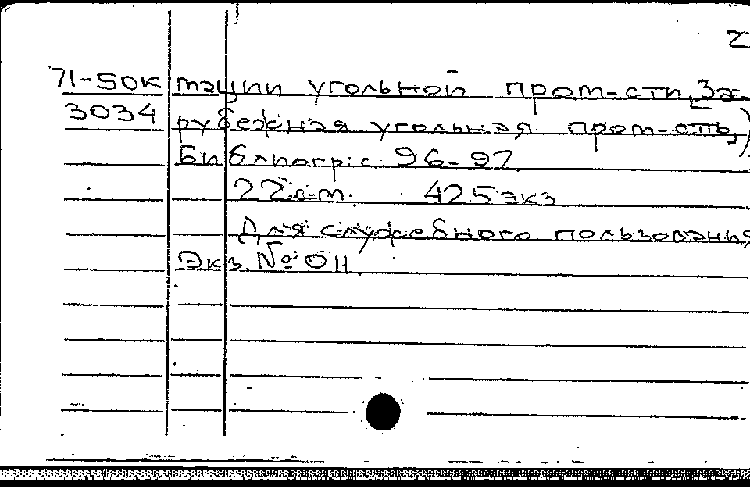 2
71-50к тации угольной пром-сти, За-
3034 рубежная угольная пром-сть,)
Библиогр.: с. 96-97.
22 см. 425 экз
Для служебного пользования
Экз. № 011.